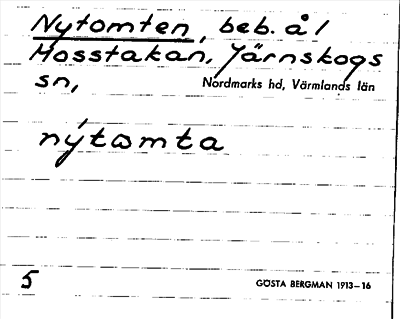 Nytomten, beb. å /
Mosstakan, Järnskogs
sn, Nordmarks hd, Värmlands län
nýtωmta
5 GÖSTA BERGMAN 1913–16